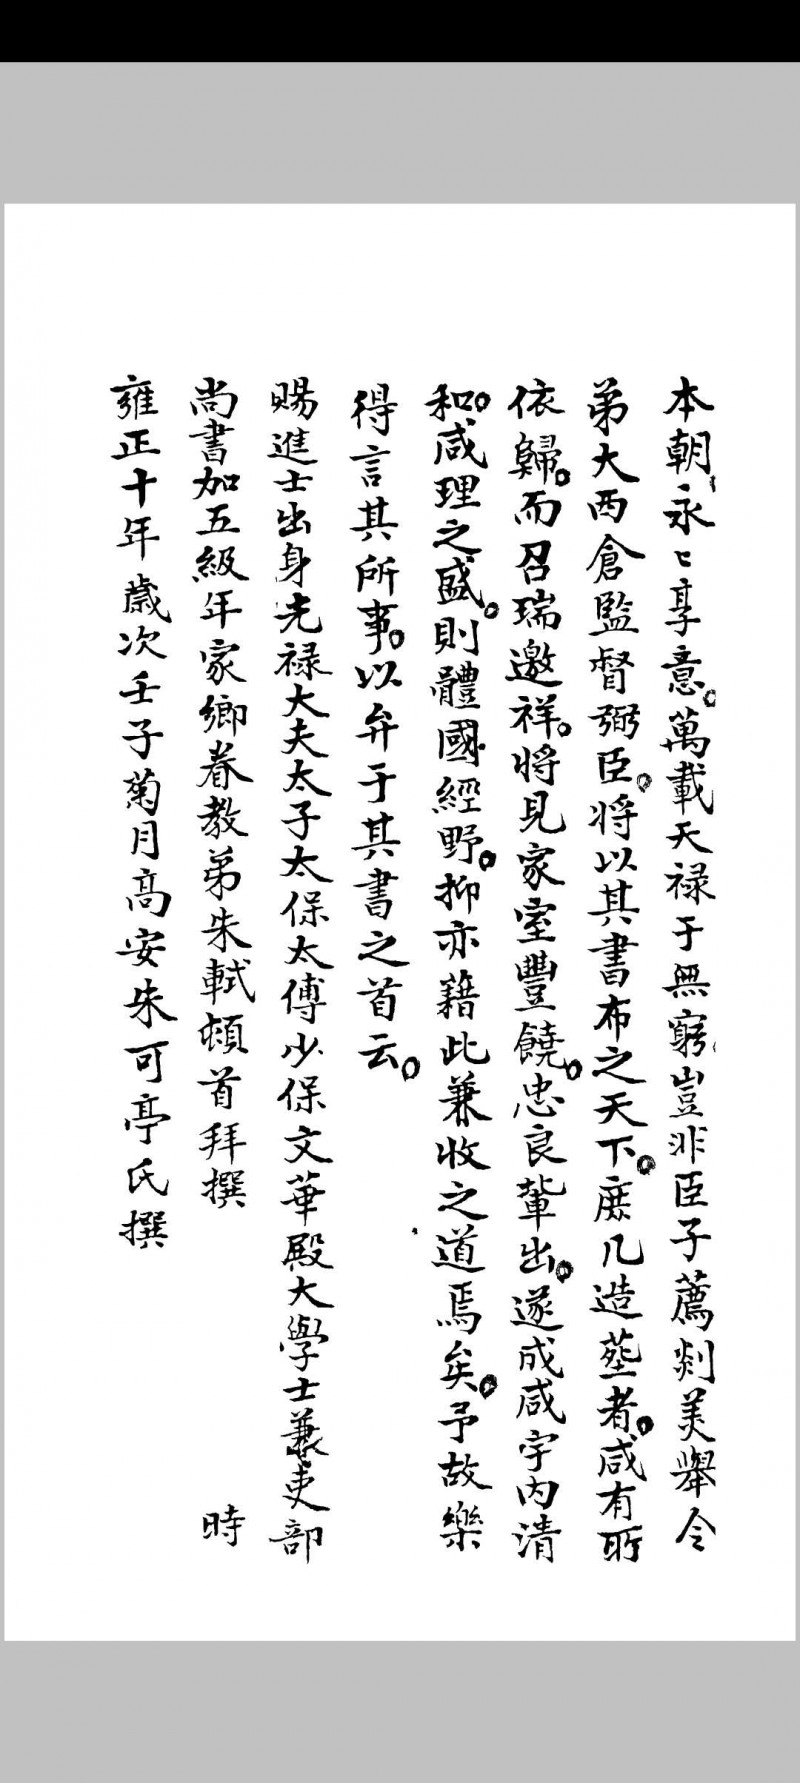 本朝永〻享意。萬載天禄于無窮豈非臣子薦剡美舉令
弟大西倉監督弼臣。將以其書布之天下。庶几造塟者。咸有所
依歸。而召瑞邀祥。將見家室豐饒。忠良輩出。遂成咸宇内清
和。咸理之盛。則體國經野。抑亦藉此兼收之道焉矣。予故樂
得言其所事。以弁于其書之首云。
賜進士出身光禄大夫太子太保太傅少保文華殿大學士兼吏部
尚書加五級年家鄉眷教弟朱軾頓首拜撰 時
雍正十年歲次壬子菊月高安朱可亭氏撰